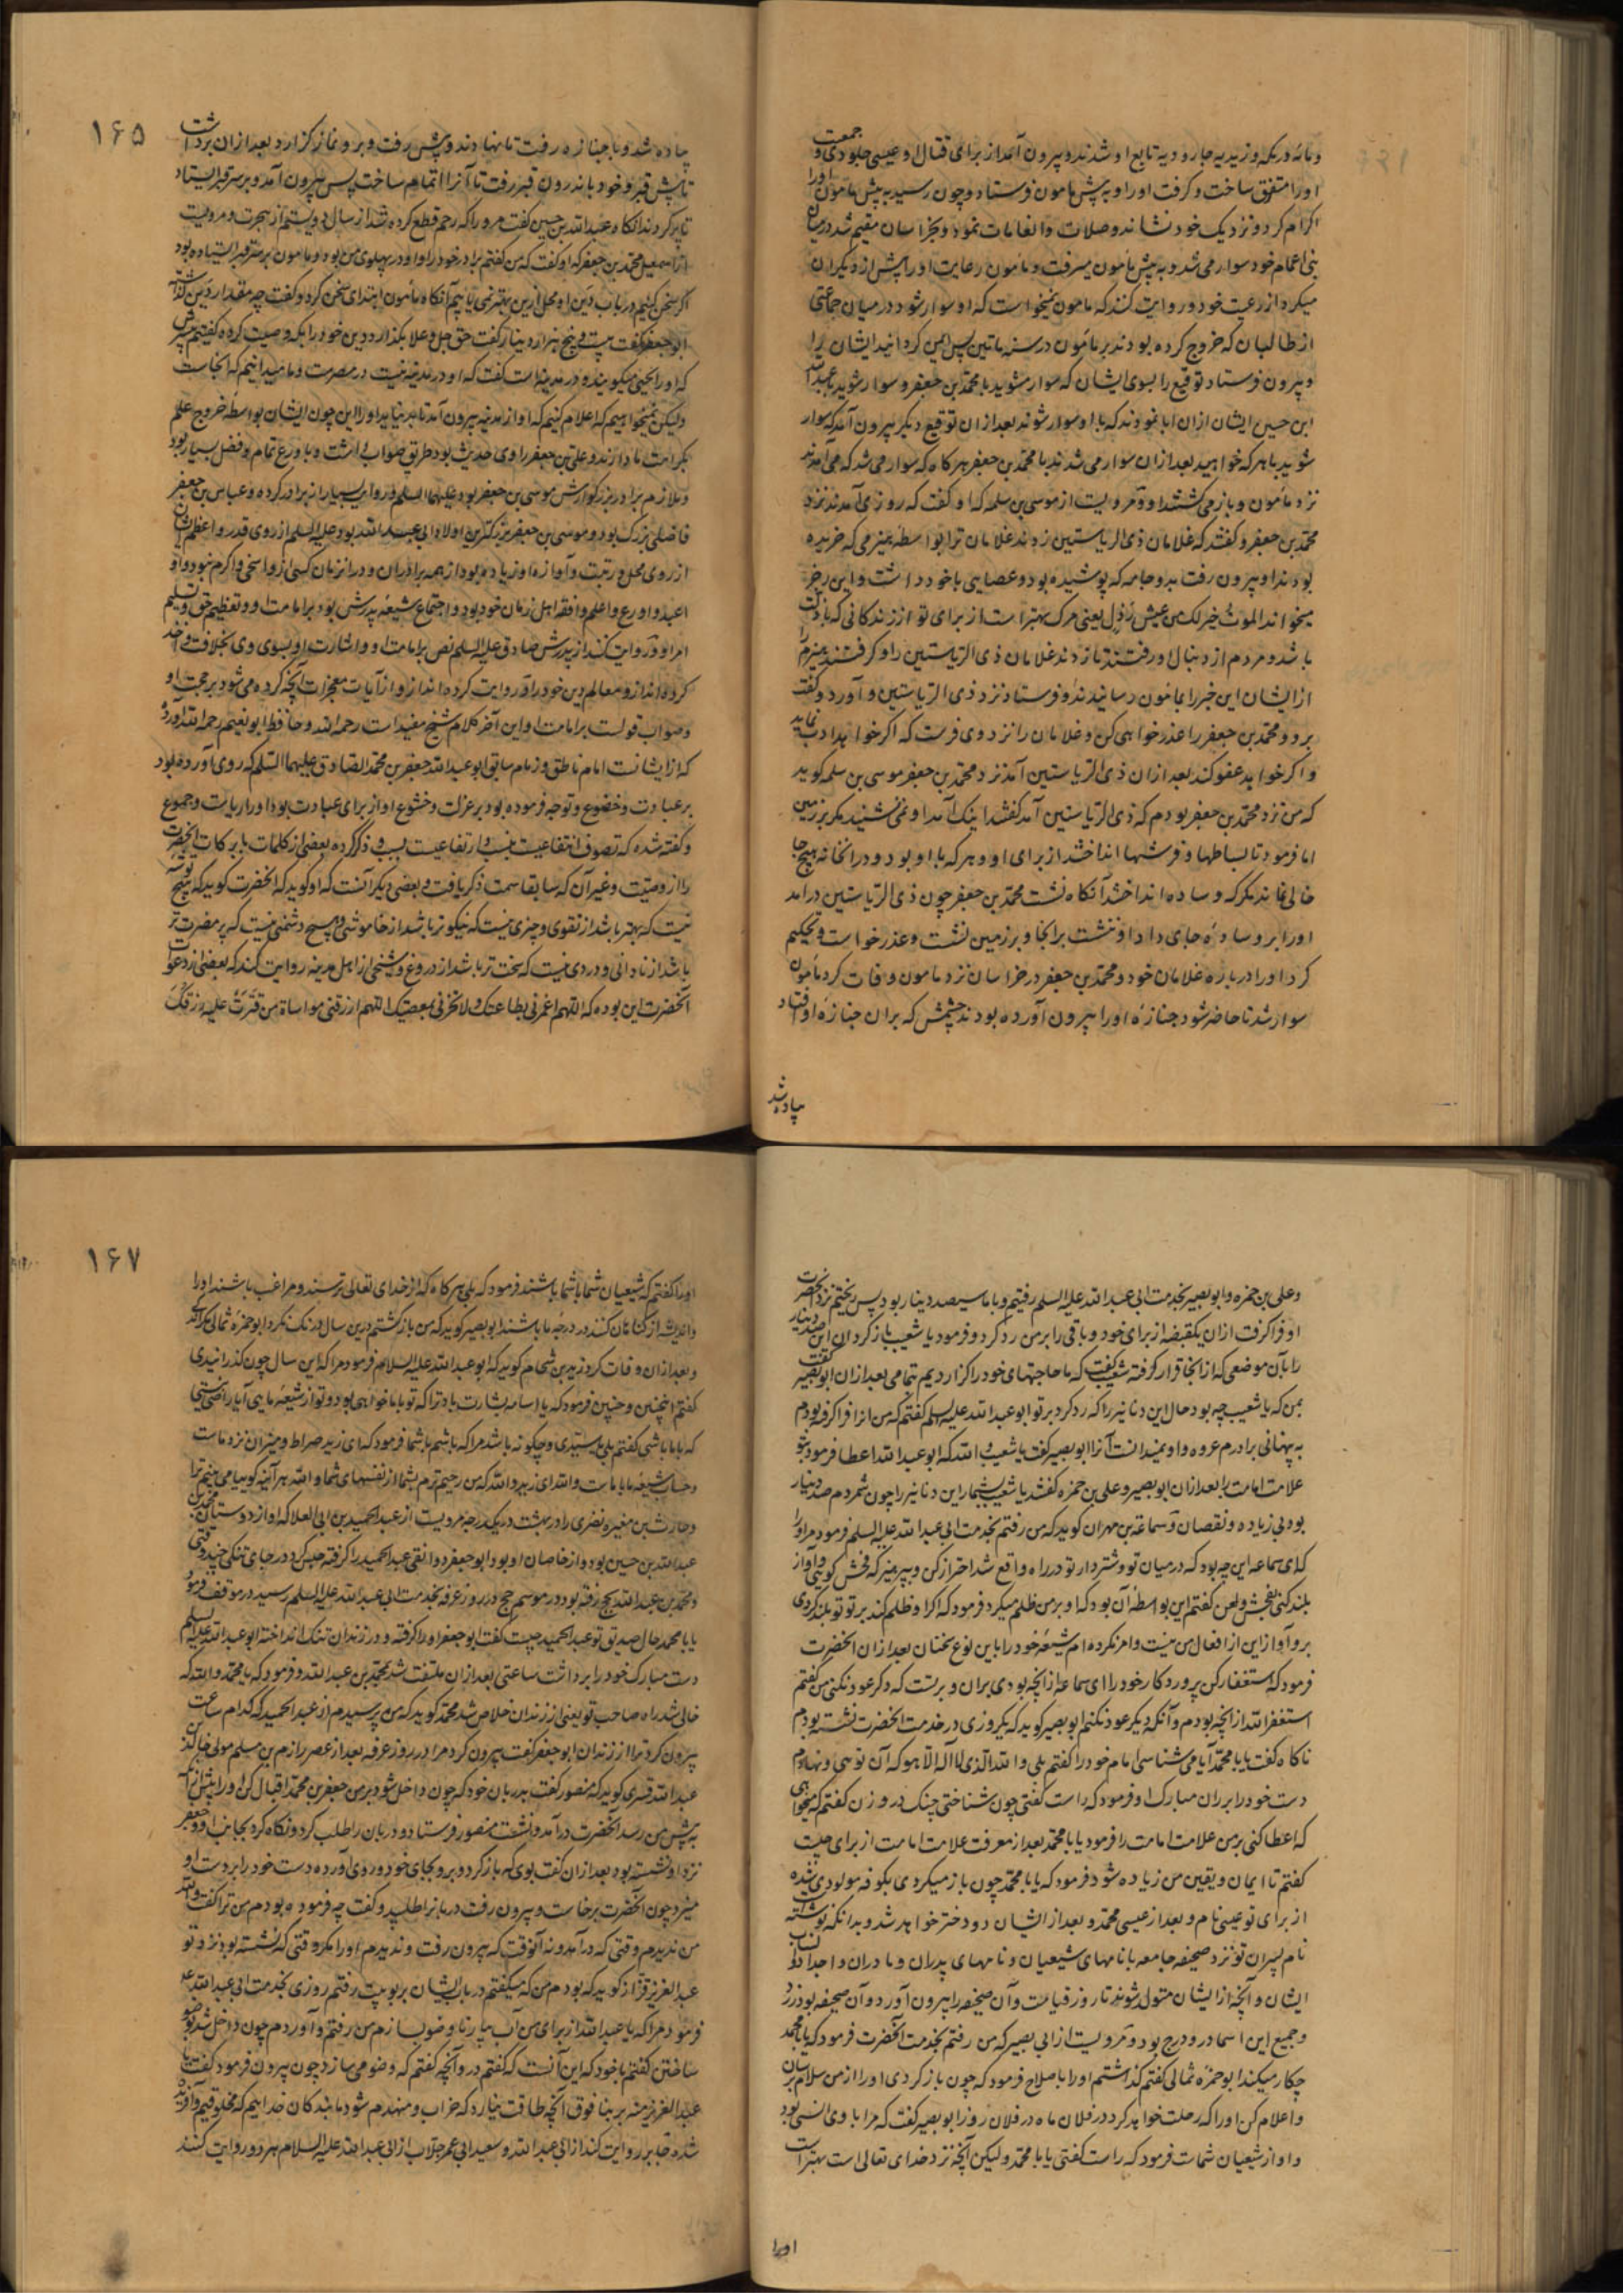 و مائه و ریکه و زیدیه جارودیه تابع او شدند و بیرون آمد از برای قتال و عیسی جلودی جمعیت
او را متفرق ساخت و گرفت او را و به پیش مامون فرستاد و چون رسید به پیش مامون او را
اکرام کرد و نزدیک خود نشاند و صلات و انعامات نمود و بخراسان مقیم شد در میان
بنی اعمام خود سوار می شد و به پیش مامون میرفت و مامون رعایت او را بیش از دیگران
میکرد از رعیت خود و روایت کنند که مامون نمیخواست که او سوار شود در میان جماعتی
از طالبیان که خروج کرده بودند بر مامون در سنه ماتین پس ایمن گردانید ایشان را
و بیرون فرستاد توقیع را بسوی ایشان که سوار مشوید با محمد بن جعفر و سوار شوید با عبدالله
ابن حسین ایشان ازان ابا نمودند که با او سوار شوند بعد ازان توقیع دیگر بیرون آمد که سوار
شوید با هر که خواهید بعد ازان سوار می شدند با محمد بن جعفر هر گاه که سوار می شد که می آمدند
نزد مامون و باز می گشتند او و مرویست از موسی بن سلمه که او گفت که روزی آمدند نزد
محمد بن جعفر و گفتند که غلامان ذی الریاستین زدند غلامان ترا بواسطه هیزمی که خریده
بودند او بیرون رفت بدو جامه که پوشیده بود و عصایی با خود داشت و این رجز
میخواند الموت خیر لک من عیش بذل یعنی مرگ بهتر است از برای تو از زندگانی که با ذلت
باشد و مردم از دنبال او رفتند تا زدند غلامان ذی الریاستین را و گرفتند هیزم را
از ایشان این خبر را بمامون رسانیدند او فرستاد نزد ذی الریاستین و آورد و گفت
برو و محمد بن جعفر را عذر خواهی کن و غلامان را نزد وی فرست که اگر خواهد ادب نماید
و اگر خواهد عفو کند بعد ازان ذی الریاستین آمد نزد محمد بن جعفر موسی بن سلمه گوید
که من نزد محمد بن جعفر بودم که ذی الریاستین آمد گفتند اینک آمد او نمی نشیند مگر بر زمین
اما فرمود تا بساطها و فرشها انداختند از برای او و هر که با او بود و در انخانه هیچ جا
خالی نماند مگر که وساده انداختند آنگاه نشست محمد بن جعفر چون ذی الریاستین درآمد
او را بر وساده جای داد او ننشست بر انجا و بر زمین نشست و عذر خواست و تحکیم
کرد او را در باره غلامان خود و محمد بن جعفر در خراسان نزد مامون وفات کرد مامون
سوار شد تا حاضر شود جنازه او را بیرون آورده بودند چشمش که بران جنازه او افتاد
پیاده شد
۱۶۵
پیاده شد و با جنازه رفت تا نهادند و پیش رفت و برو نماز گزارد بعد ازان برداشت
تا پیش قبر و خود باندرون قبر رفت تا آنرا اتمام ساخت پس بیرون آمد و بر سر قبر ایستاد
تا پر کردند انگاه عبدالله بن حسین گفت مرو را که رحم قطع کرده شد از سال دویستم از هجرت و مرویست
از اسمعیل محمد بن جعفر که او گفت که من گفتم برادر خود را و او در پهلوی من بود و مامون بر سر قبر ایستاده بود
اگر سخن کنیم در باب دین او محل ازین بهتر نمی یابیم آنگاه مامون ابتدای سخن کرد و گفت چه مقدار دین گذاشته
ابو جعفر گفت بیست و پنج هزار دینار گفت حق جل و علا بگذارد دین خود را بکه وصیت کرده گفتیم پسرش
که او را یحیی میگویند و در مدینه است گفت که او در مدینه نیست در مصرست و ما میدانیم که انجاست
ولیکن نمیخواهیم که اعلام کنیم که او از مدینه بیرون آمد تا بد نیاید او را این چون ایشان بواسطه خروج علم
بکراهت ما دارند و علی بن جعفر راوی حدیث بود طریق صواب داشت و با ورع تمام و فضل بسیار بود
و ملازم برادر بزرگوارش موسی بن جعفر بود علیهما السلم و روایت بسیار از برادر کرده و عباس بن جعفر
فاضلی بزرگ بود و موسی بن جعفر بزرگترین اولاد ابی عبدالله بود علیه السلم از روی قدر و اعظم ایشان
از روی محل و رتبت و آوازه او زیاده بود از همه برادران و در ان زمان کسی از و اسخی و اکرم نبود و او
اعبد و اورع و اعلم و افقه اهل زمان خود بود و اجتماع شیعه پدرش بود بر امامت او و تعظیم حق و تسلیم
امر او و روایت کنند از پدرش صادق علیه السلم نص بر امامت او و اشارت او بسوی وی بخلافت و اخذ
کرده اند از و معالم دین خود را و روایت کرده اند از و از آیات و معجزات آنچه کرده می شود بر حجت او
و صواب قولست بر امامت او این آخر کلام شیخ مفید است رحمه الله و حافظ ابو نعیم رحمه الله آورده
که از ایشانست امام ناطق و زمام سابق ابو عبدالله جعفر بن محمد الصادق علیهما السلم که روی آورده بود
بر عبادت و خضوع و توجه فرموده بود بر عزلت و خشوع او از برای عبادت بود او را ریاست و جموع
و گفته شده که تصوف انتفاعیست بنسب و ارتفاعیست بسبب و ذکر کرده بعضی از کلمات با برکات آنحضرت
را از وصیت و غیر آن که سابقا سمت ذکر یافت و بعضی دیگر آنست که او گوید که آنحضرت گوید که هیچ توشه
نیست که بهتر باشد از تقوی و چیزی نیست که نیکوتر باشد از خاموشی و هیچ دشمنی نیست که پر مضرت تر
باشد از نادانی و دردی نیست که سخت تر باشد از دروغ و شخصی از اهل مدینه روایت کند که بعضی از دعوات
آنحضرت این بوده که اللهم اعمرنی بطاعتک و لا تخزنی بمعصیتک اللهم ارزقنی مواساة من قترت علیه رزقک
و علی بن حمزه و ابو بصیر بخدمت ابی عبدالله علیه السلم رفتیم و با ما سیصد دینار بود پس ریختیم نزد آنحضرت
او فرا گرفت ازان یکقبضه از برای خود و باقی را بر من رد کرد و فرمود یا شعیب باز گردان این صد دینار
را بآن موضعی که از انجا قرار گرفته شعیب گفت که ما حاجتهای خود را گزاردیم تمامی بعد ازان ابو بصیر گفت
بمن که یا شعیب چه بود حال این دنانیر را که رد کرد بر تو ابو عبدالله علیه السلم گفتم که من انرا فرا گرفته بودم
به پنهانی برادرم عروه و او نمیدانست آنرا ابو بصیر گفت یا شعیب والله که ابو عبدالله اعطا فرمود بتو
علامت امامت را بعد ازان ابو بصیر و علی بن حمزه گفتند یا شعیب بشمار این دنانیر را چون شمردم صد دینار
بود بی زیاده و نقصان و سماعه بن مهران گوید که من رفتم بخدمت ابی عبدالله علیه السلم فرمود مرا او را
که ای سماعه این چه بود که در میان تو و شتردار تو در راه واقع شد احتراز کن و بپرهیز که فحش گویی و آواز
بلند کنی بفحش و لعن گفتم این بواسطه آن بود که او بر من ظلم میکرد فرمود که اگر او ظلم کند بر تو تو بلند کردی
برو آواز این از افعال من نیست و امر نکرده ام شیعه خود را باین نوع سخنان بعد ازان آنحضرت
فرمود که استغفار کن پروردگار خود را ای سماعه از آنچه بودی بران و بر تست که دگر عود نکنی من گفتم
استغفر الله از آنچه بودم و آنکه دیگر عود نکنم ابو بصیر گوید که یکروزی در خدمت آنحضرت نشسته بودم
ناگاه گفت یا با محمد آیا می شناسی امام خود را گفتم بلی والله الذی لا اله الا هو که آن تویی و نهادم
دست خود را بر ران مبارک او فرمود که راست گفتی چون شناختی چنگ در و زن گفتم که میخواهی
که اعطا کنی بر من علامت امامت را فرمود یا با محمد بعد از معرفت علامت امامت از برای چیست
گفتم تا ایمان و یقین من زیاده شود فرمود که یا با محمد چون باز میگردی بکوفه مولودی شده
از برای تو عیسی نام و بعد از عیسی محمد و بعد از ایشان دو دختر خواهد شد و بدانکه نوشته است
نام پسران تو نزد صحیفه جامعه با نامهای شیعیان و نامهای پدران و مادران و اجداد و انساب
ایشان و آنچه از ایشان متولد شوند تا روز قیامت و آن صحیفه را بیرون آورد و آن صحیفه بود زرد
و جمیع این اسما درو درج بود و مرویست از ابی بصیر که من رفتم بخدمت آنحضرت فرمود که یا با محمد
چکار میکند ابو حمزه ثمالی گفتم گذاشتم او را باصلاح فرمود که چون باز گردی او را از من سلام برسان
و اعلام کن او را که رحلت خواهد کرد در فلان ماه در فلان روز ابو بصیر گفت که مرا با وی انسی بود
و او از شیعیان شماست فرمود که راست گفتی یا با محمد ولیکن آنچه نزد خدای تعالی است بهتر است
او را
۱۶۷
او را گفتم که شیعیان شما با شما باشند فرمود که بلی هر گاه که از خدای تعالی ترسند و مراغب باشند او را
و اندیشه از گناهان کنند در درجه ما باشند ابو بصیر گوید که من باز گشتم درین سال درنگ نکرد ابو حمزه ثمالی مگر اندکی
و بعد ازان وفات کرد زید بن شحام گوید که ابو عبدالله علیه السلام فرمود مرا که این سال چون گذرانیدی
گفتم اینچنین و چنین فرمود که یا اسامه بشارت باد ترا که تو با ما خواهی بود و تو از شیعه مایی آیا راضی نیستی
که با ما باشی گفتم بلی یا سیدی و چگونه باشد مرا که باشم با شما فرمود که ای زید صراط و میزان نزد ماست
و حساب شیعه ما با ماست والله ای زید والله که من رحیم ترم بشما از نفسهای شما والله هر آینه گوییا می بینم ترا
و حارث بن مغیره نضری را در بهشت در یک درجه مرویست از عبد الحمید بن ابی العلا که او از دوستان محمد بن
عبدالله بن حسین بود و از خاصان او بود ابو جعفر دوانقی عبد الحمید را گرفته حبس کرد در جای تنگی چند وقتی
و محمد بن عبدالله بحج رفته بود در موسم حج در روز عرفه بخدمت ابی عبدالله علیه السلم رسید در موقف فرمود
یا با محمد حال صدیق تو عبد الحمید چیست گفت ابو جعفر او را گرفته و در زندان تنگ انداخته ابو عبدالله علیه السلم
دست مبارک خود را برداشت ساعتی بعد ازان ملتفت شد بمحمد بن عبدالله و فرمود که یا محمد والله که
خالی شد راه صاحب تو یعنی از زندان خلاص شد محمد گوید که من پرسیدم از عبد الحمید که کدام ساعت
بیرون کرد ترا از زندان ابو جعفر گفت بیرون کرد مرا در روز عرفه بعد از عصر رازم بن سلم مولی خالد بن
عبدالله قسری گوید که منصور گفت بدربان خود که چون داخل شود بر من جعفر بن محمد اقبال کن او را پیش از آنکه
به پیش من رسد آنحضرت درآمد و نشست منصور فرستاد و دربان را طلب کرد و نگاه کرد بجانب او و جعفر
نزد او نشسته بود بعد ازان گفت بوی که باز گرد و برو بجای خود و روی آورده دست خود را بر دست او
میزد چون آنحضرت برخاست و بیرون رفت دربانرا طلبید و گفت چه فرموده بودم من ترا گفت والله
من ندیدم وقتی که درآمد و نه آنوقت که بیرون رفت و ندیدم او را مگر وقتی که نشسته بود نزد تو
عبد العزیز قزاز گوید که بودم من که میگفتم در باب ایشان بربوبیت رفتم روزی بخدمت ابی عبدالله علیه
فرمود مرا که یا عبدالله از برای من آب بیار تا وضو بسازم من رفتم و آوردم چون داخل شد بوضو
ساختن گفتم با خود که این آنست که گفتم در و آنچه گفتم که وضو می سازد چون بیرون فرمود گفت یا
عبد العزیز منه بر بنا فوق آنچه طاقت نیارد که خراب و منهدم شود ما بندگان خداییم که مخلوقیم و آفریده
شده جابر روایت کند از ابی عبدالله و سعید ابی عمر جلاب از ابی عبدالله علیه السلام هر دو روایت کنند